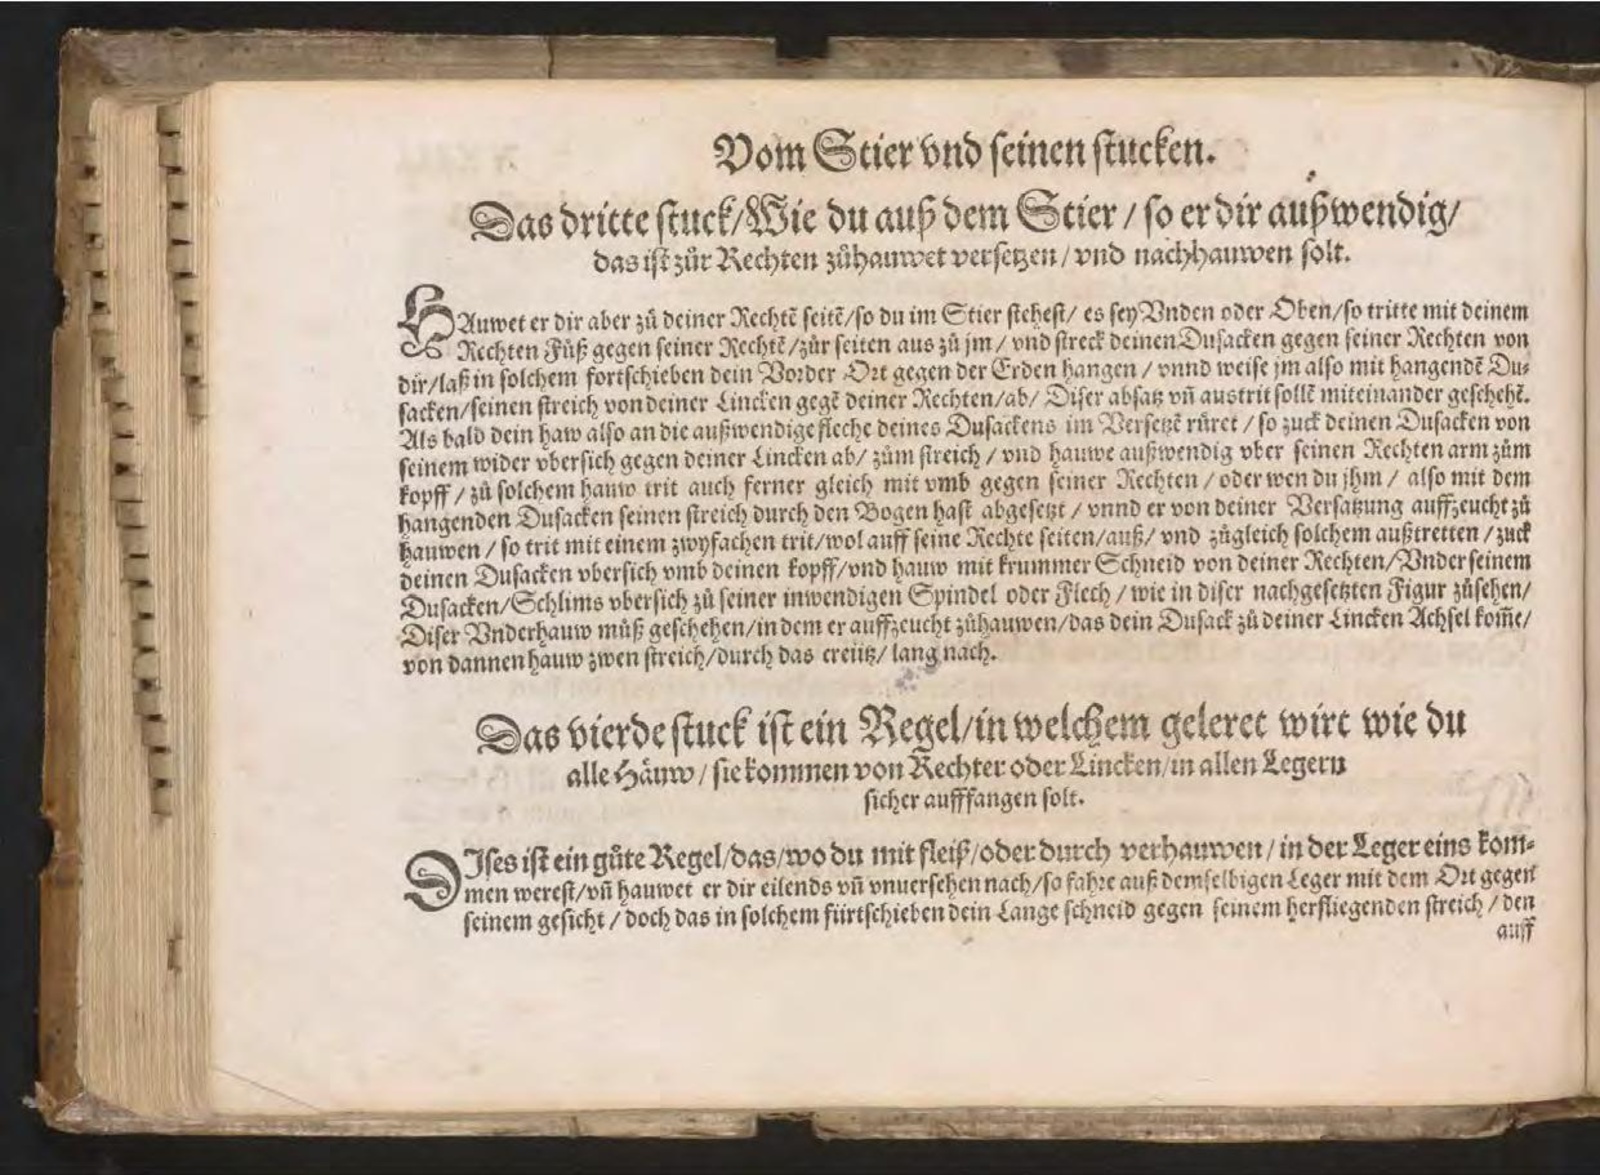 Vom Stier vnd seinen stucken.
Das dritte stuck/Wie du auß dem Stier / so er dir außwendig/
das ist zůr Rechten zůhauwet versetzen / vnd nachhauwen solt.
HAuwet er dir aber zů deiner Rechtẽ seitẽ/so du im Stier stehest/ es sey Vnden oder Oben/so tritte mit deinem
Rechten Fůß gegen seiner Rechtẽ/zůr seiten aus zů jm / vnd streck deinen Dusacken gegen seiner Rechten von
dir/laß in solchem fortschieben dein Vorder Ort gegen der Erden hangen / vnnd weise jm also mit hangendẽ Du-
sacken/seinen streich von deiner Lincken gegẽ deiner Rechten/ab/ Diser absatz vñ austrit sollẽ miteinander geschehẽ.
Als bald dein haw also an die außwendige fleche deines Dusackens im Versetzẽ růret / so zuck deinen Dusacken von
seinem wider vbersich gegen deiner Lincken ab/ zům streich / vnd hauwe außwendig vber seinen Rechten arm zům
kopff / zů solchem hauw trit auch ferner gleich mit vmb gegen seiner Rechten / oder wen du jhm / also mit dem
hangenden Dusacken seinen streich durch den Bogen hast abgesetzt / vnnd er von deiner Versatzung auffzeucht zů
hauwen / so trit mit einem zwyfachen trit/wol auff seine Rechte seiten/auß/ vnd zůgleich solchem außtretten / zuck
deinen Dusacken vbersich vmb deinen kopff/vnd hauw mit krummer Schneid von deiner Rechten/Vnder seinem
Dusacken/Schlims vbersich zů seiner inwendigen Spindel oder Flech / wie in diser nachgesetzten Figur zůsehen/
Diser Vnderhauw můß geschehen/in dem er auffzeucht zůhauwen/das dein Dusack zů deiner Lincken Achsel kom̃e/
von dannen hauw zwen streich/durch das creütz/ lang nach.
Das vierde stuck ist ein Regel/in welchem geleret wirt wie du
alle Häuw / sie kommen von Rechter oder Lincken/in allen Legern
sicher aufffangen solt.
DIses ist ein gůte Regel/das/wo du mit fleiß/oder durch verhauwen / in der Leger eins kom-
men werest/vñ hauwet er dir eilends vñ vnuersehen nach/so fahre auß demselbigen Leger mit dem Ort gegen
seinem gesicht / doch das in solchem fürtschieben dein Lange schneid gegen seinem herfliegenden streich / den
auff